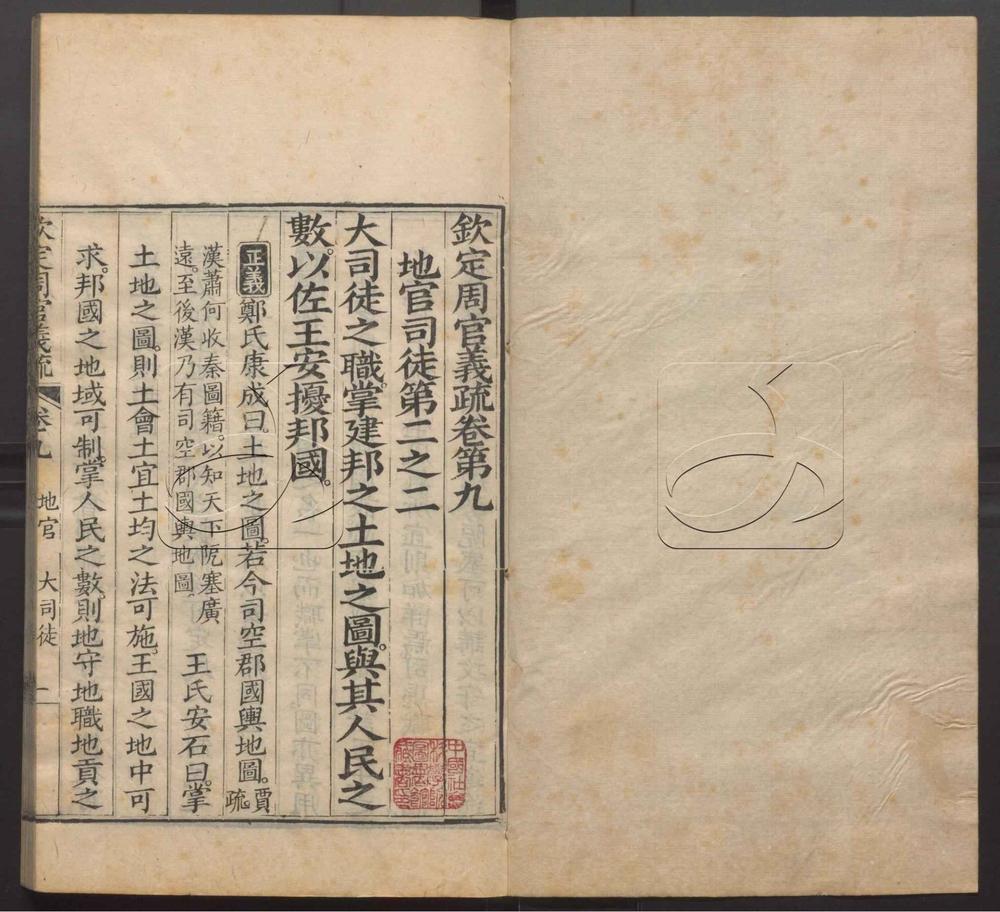 欽定周官義疏卷第九
地官司徒第二之二
大司徒之職掌建邦之土地之圖與其人民之
數以佐王安擾邦國
正義鄭氏康成曰土地之圖若今司空郡國輿地圖賈疏
漢蕭何收秦圖籍以知天下阨塞廣
遠至後漢乃有司空郡國輿地圖
王氏安石曰掌
土地之圖則土會土宜土均之法可施王國之地中可
求邦國之地域可制掌人民之數則地守地職地貢之
欽定周官義疏 卷九 地官 大司徒 一